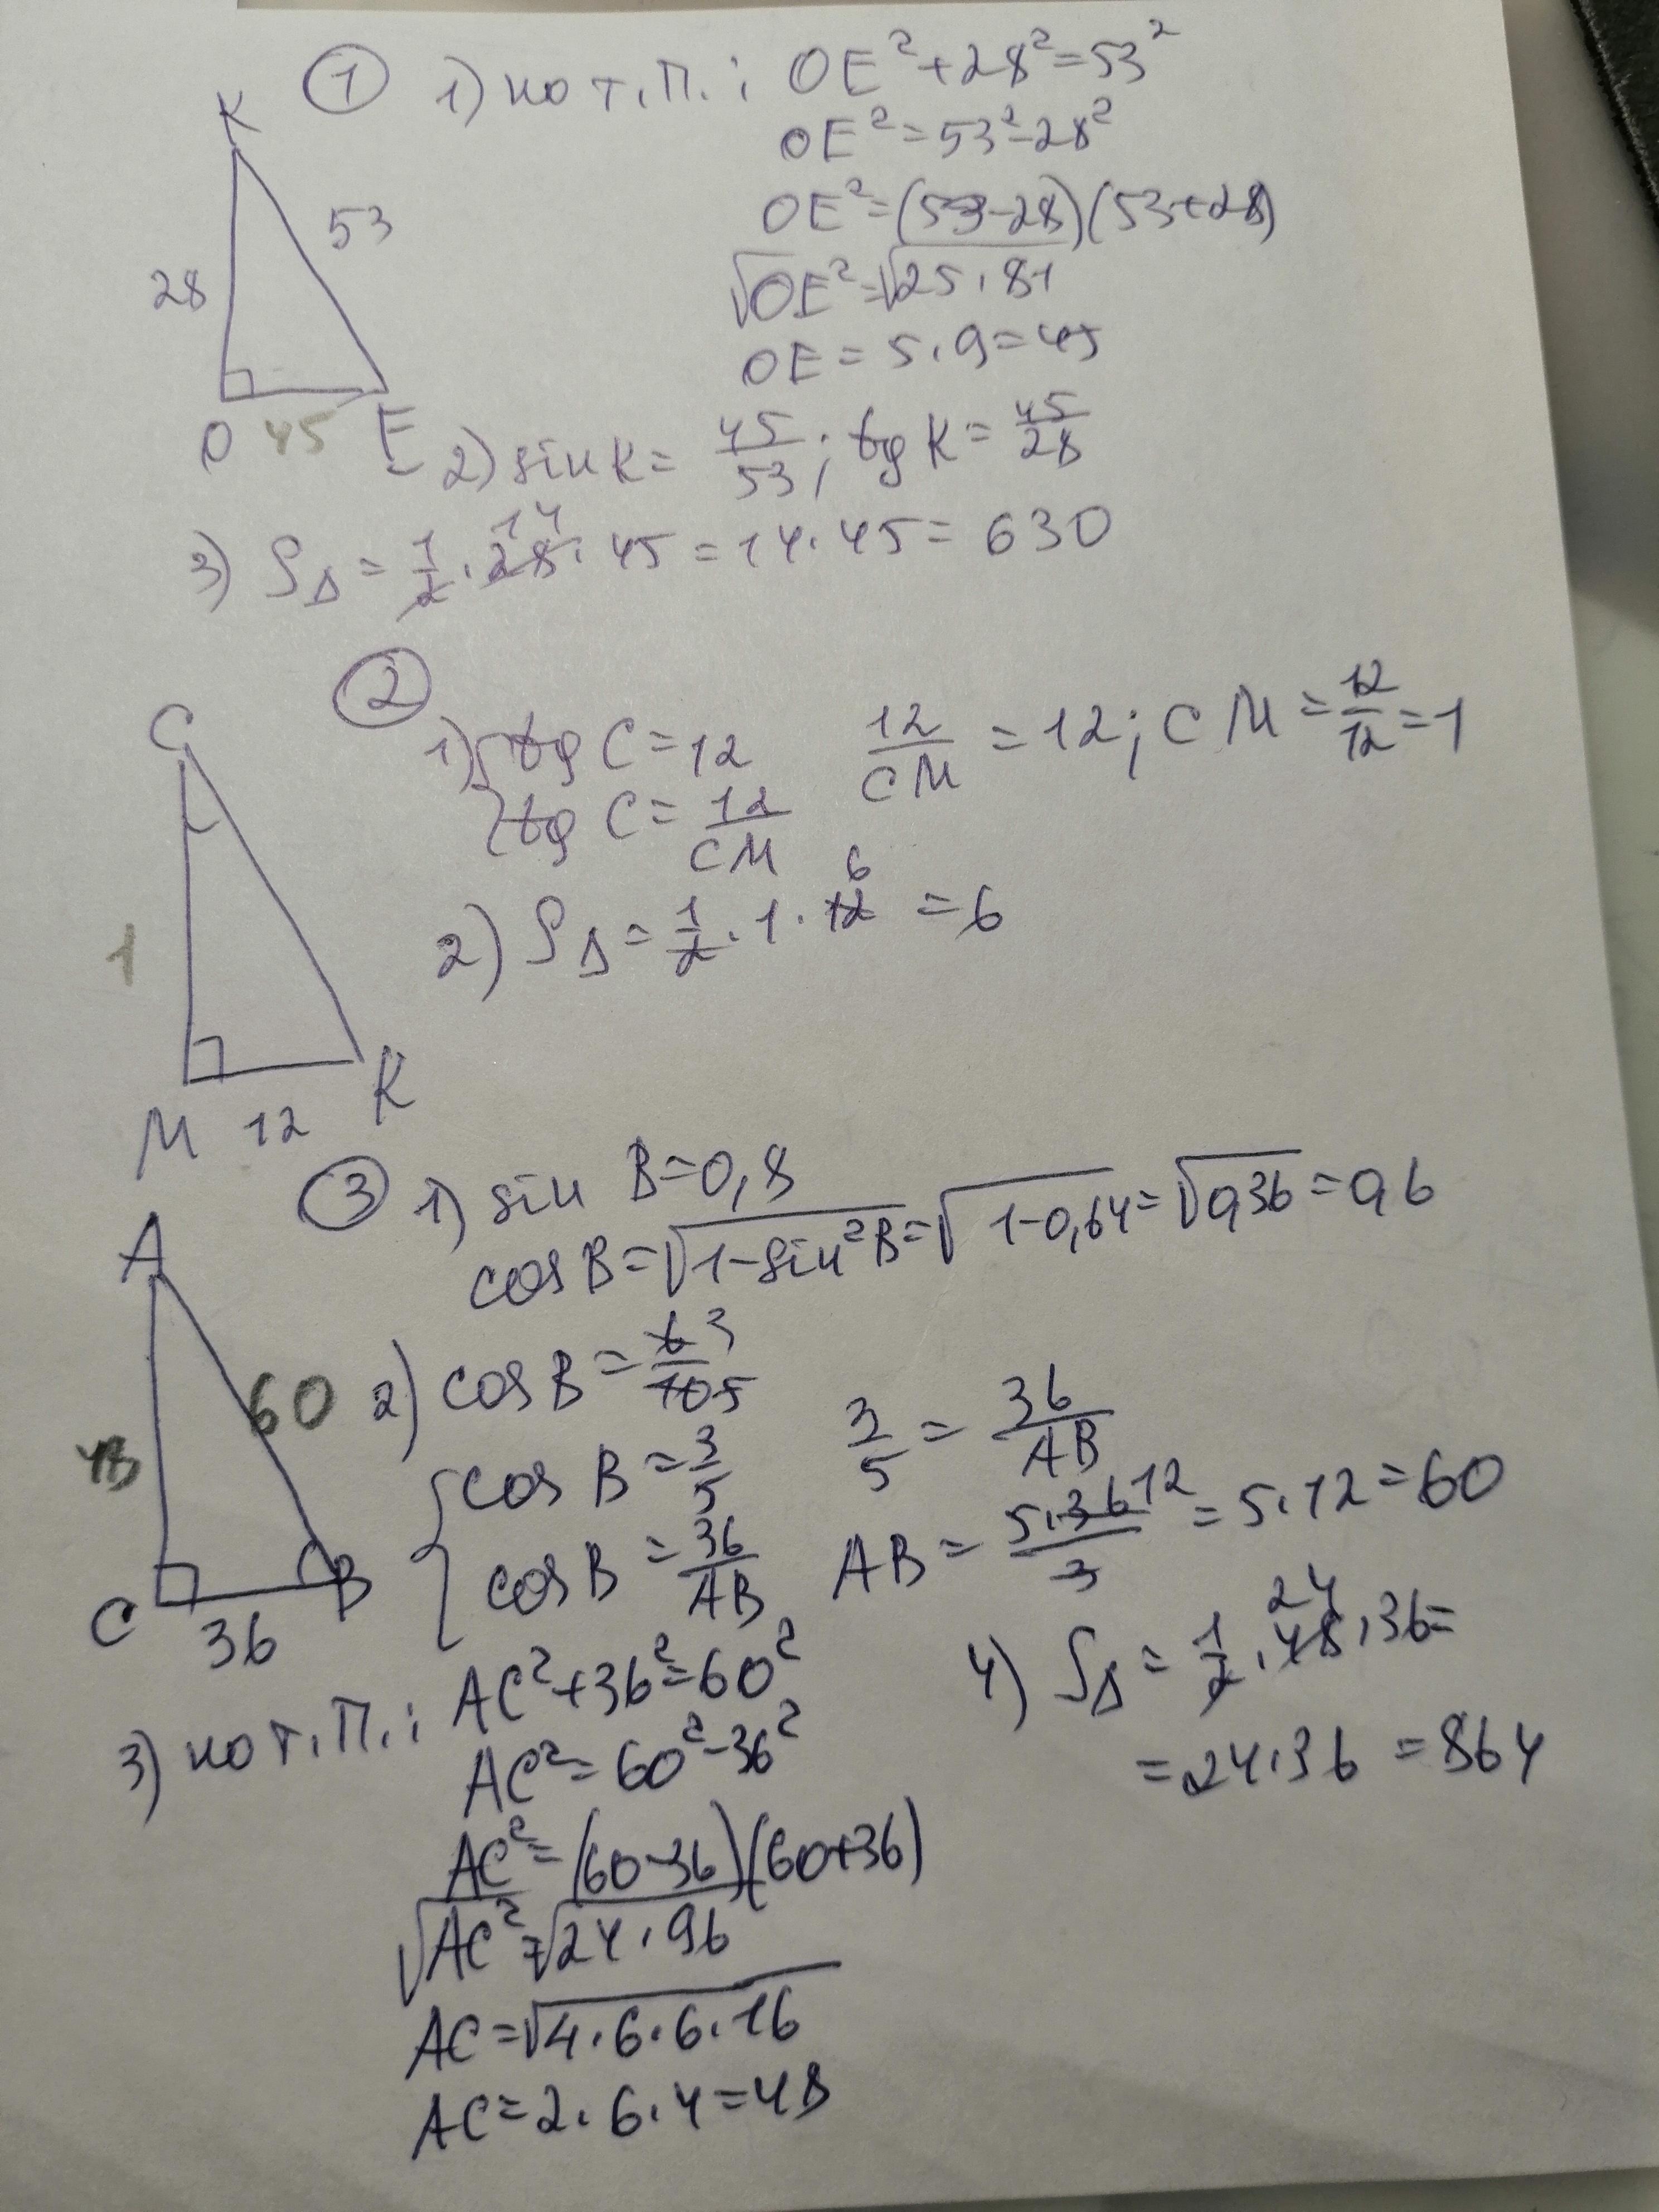 ① 1) по т.П.: OE² + 28² = 53²
OE² = 53² - 28²
OE² = (53-28)(53+28)
√OE² = √25·81
OE = 5·9 = 45
K
53
28
O 45 E
2) sin K = 45/53; tg K = 45/28
3) S△ = 1/2 · 28 14 · 45 = 14·45 = 630
②
1) { tg C = 12
tg C = 12/CM
12/CM = 12; CM = 12/12 = 1
2) S△ = 1/2 · 1 · 12 6 = 6
C
1
M 12 K
③ 1) sin B = 0,8
cos B = √1-sin²B = √1-0,64 = √0,36 = 0,6
A
60
48
C 36 B
2) cos B = 6 3/10 5
{ cos B = 3/5
cos B = 36/AB
3/5 = 36/AB
AB = 5·36 12/3 = 5·12 = 60
3) по т.П.: AC² + 36² = 60²
AC² = 60² - 36²
AC² = (60-36)(60+36)
√AC² = √24·96
AC = √4·6·6·16
AC = 2·6·4 = 48
4) S△ = 1/2 · 48 24 · 36 =
= 24·36 = 864